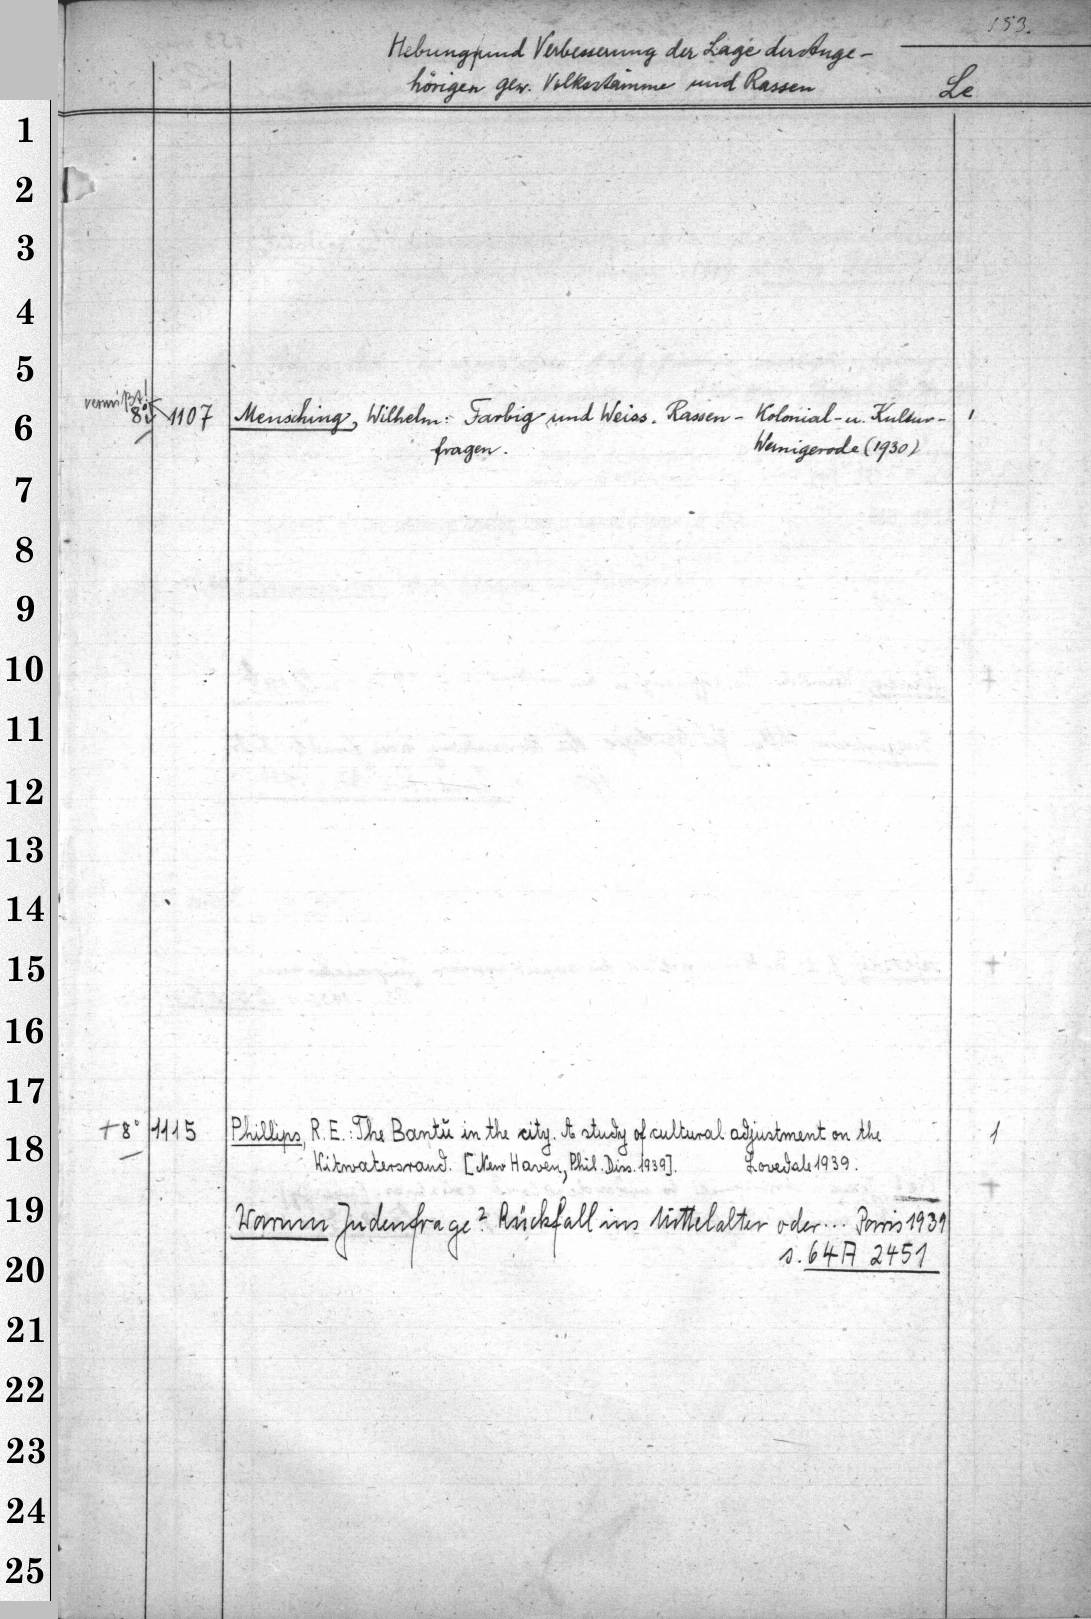 153.
Hebung und Verbesserung der Lage der Ange-
hörigen gew. Volksstämme und Rassen Le
1
2
3
4
5
vermißt!
6 8° 1107 Mensching, Wilhelm: Farbig und Weiss. Rassen- Kolonial- u. Kultur- 1
fragen. Wernigerode (1930)
7
8
9
10
11
12
13
14
15
16
17
18 + 8° 1115 Phillips, R. E.: The Bantu in the city. A study of cultural adjustment on the 1
Witwatersrand. [New Haven, Phil. Diss. 1939]. Lovedale 1939.
19 Warum Judenfrage? Rückfall ins Mittelalter oder... Paris 1939
20 s. 64 A 2451
21
22
23
24
25